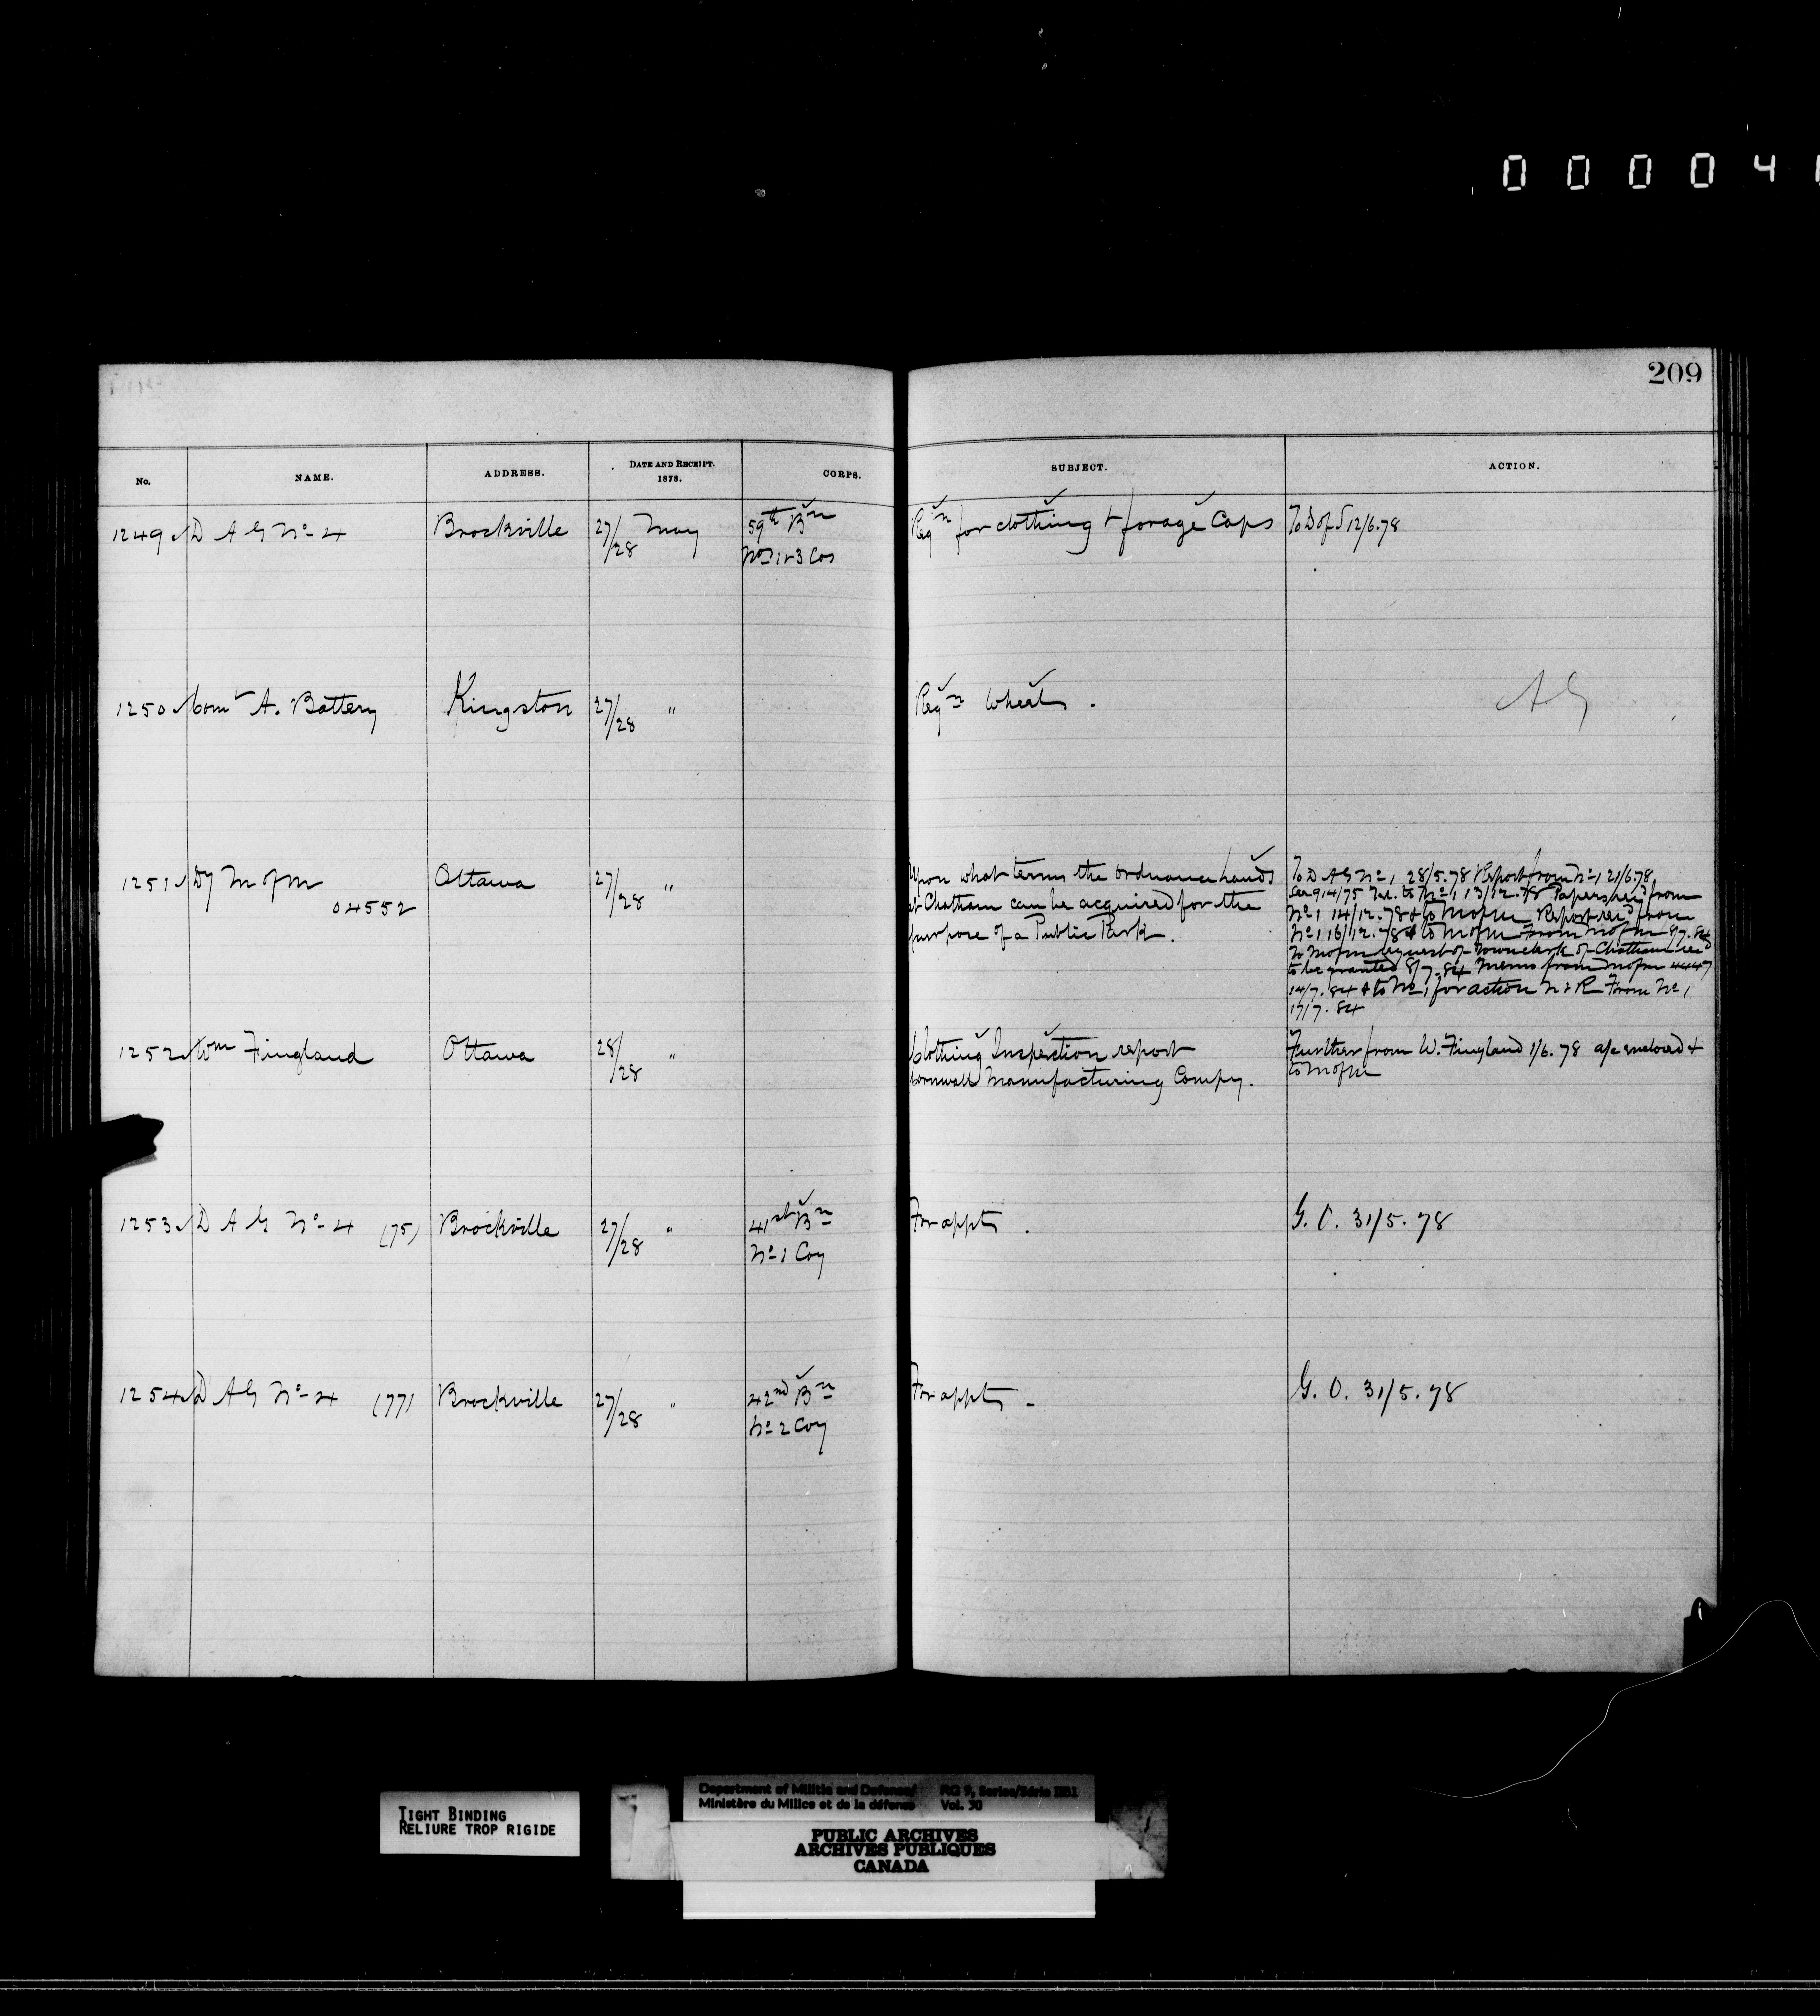 0 0 0 0 4
209
No. NAME. ADDRESS. DATE AND RECEIPT. 1878. CORPS. SUBJECT. ACTION.
1249 D A G No 4 Brockville 27/28 May 59th Bn Reqn for clothing & forage Caps To D of S 12/6.78
Nos 1 & 3 Cos
1250 Comt A. Battery Kingston 27/28 " Reqn Wheels. AG
1251 Dy M of M Ottawa 27/28 " Upon what terms the Ordnance Lands To D A G No 1 28/5.78 Report from No 1 21/6.78
04552 at Chatham can be acquired for the See 914/75 Tel. to No 1 13/12.78 Papers recd from
purpose of a Public Park. No 1 14/12.78 & to M of M Report recd from
No 1 16/12.78 & to M of M From M of M 8/7.84
To M of M request of Town clerk of Chatham recd
to be granted 8/7.84 Memo from M of M 4447
14/7.84 & to No 1 for action N & R From No 1
17/7.84
1252 Wm Fingland Ottawa 28/28 " Clothing Inspection report Further from W. Fingland 1/6.78 a/c enclosed &
Cornwall Manufacturing Compy. to M of M
1253 D A G No 4 (75) Brockville 27/28 " 41st Bn For appts. G. O. 31/5.78
No 1 Coy
1254 D A G No 4 (77) Brockville 27/28 " 42nd Bn For appts - G. O. 31/5.78
No 2 Coy
TIGHT BINDING
RELIURE TROP RIGIDE
Department of Militia and Defence/ RG 9, Series/Série IIB1
Ministère du Milice et de la défense Vol. 30
PUBLIC ARCHIVES
ARCHIVES PUBLIQUES
CANADA